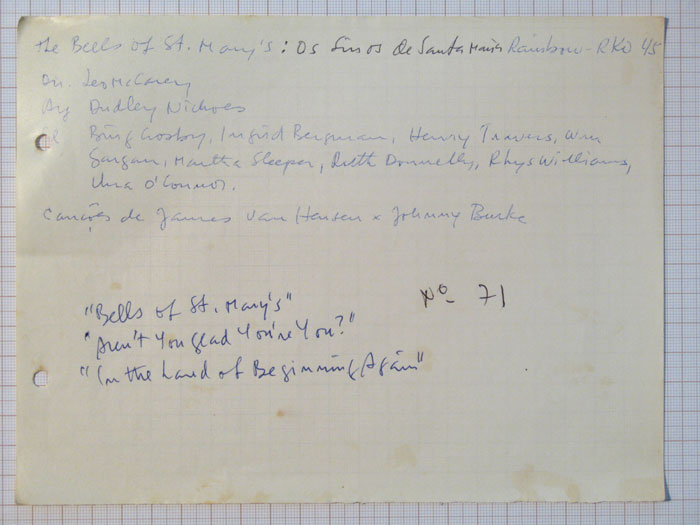 The Bells of St. Mary's: Os Sinos de Santa Maria Rainbow-RKO 45
Dir. Leo McCarey
Arg Dudley Nichols
El Bing Crosby, Ingrid Bergman, Henry Travers, Wm
Gargan, Martha Sleeper, Ruth Donnelly, Rhys Williams,
Una O'Connor.
Canções de James Van Heusen x Johnny Burke
"Bells of St. Mary's"
Nº 71
"Aren't You glad You're You?"
"In the Land of Beginning Again"